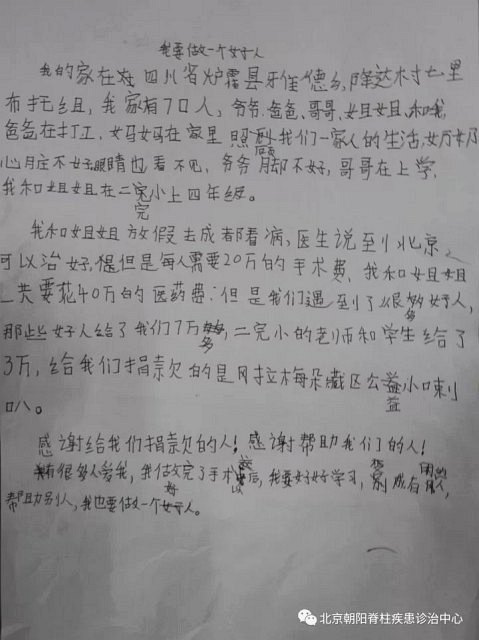 我要做一个好人
我的家在四川省炉霍县牙佳德乡,降达村七里
布托组,我家有7口人,爷爷、爸爸、哥哥、姐姐、和我,
爸爸在打工,妈妈在家里照顾我们一家人的生活,奶奶
心脏不好眼睛也看不见,爷爷脚不好,哥哥在上学,
我和姐姐在二完小上四年级。
我和姐姐放假去成都看病,医生说到北京
可以治好,但是每人需要20万的手术费,我和姐姐
一共要花40万的医药费:但是我们遇到了很多好人,
那些好人给了我们7万多,二完小的老师和学生给了
3万,给我们捐款的是冈拉梅朵藏区公益小喇
叭。
感谢给我们捐款的人!感谢帮助我们的人!
有很多人爱我,我做完了手术以后,我要好好学习,成有用的人,
帮助别人,我也要做一个好人。
北京朝阳脊柱疾患诊治中心